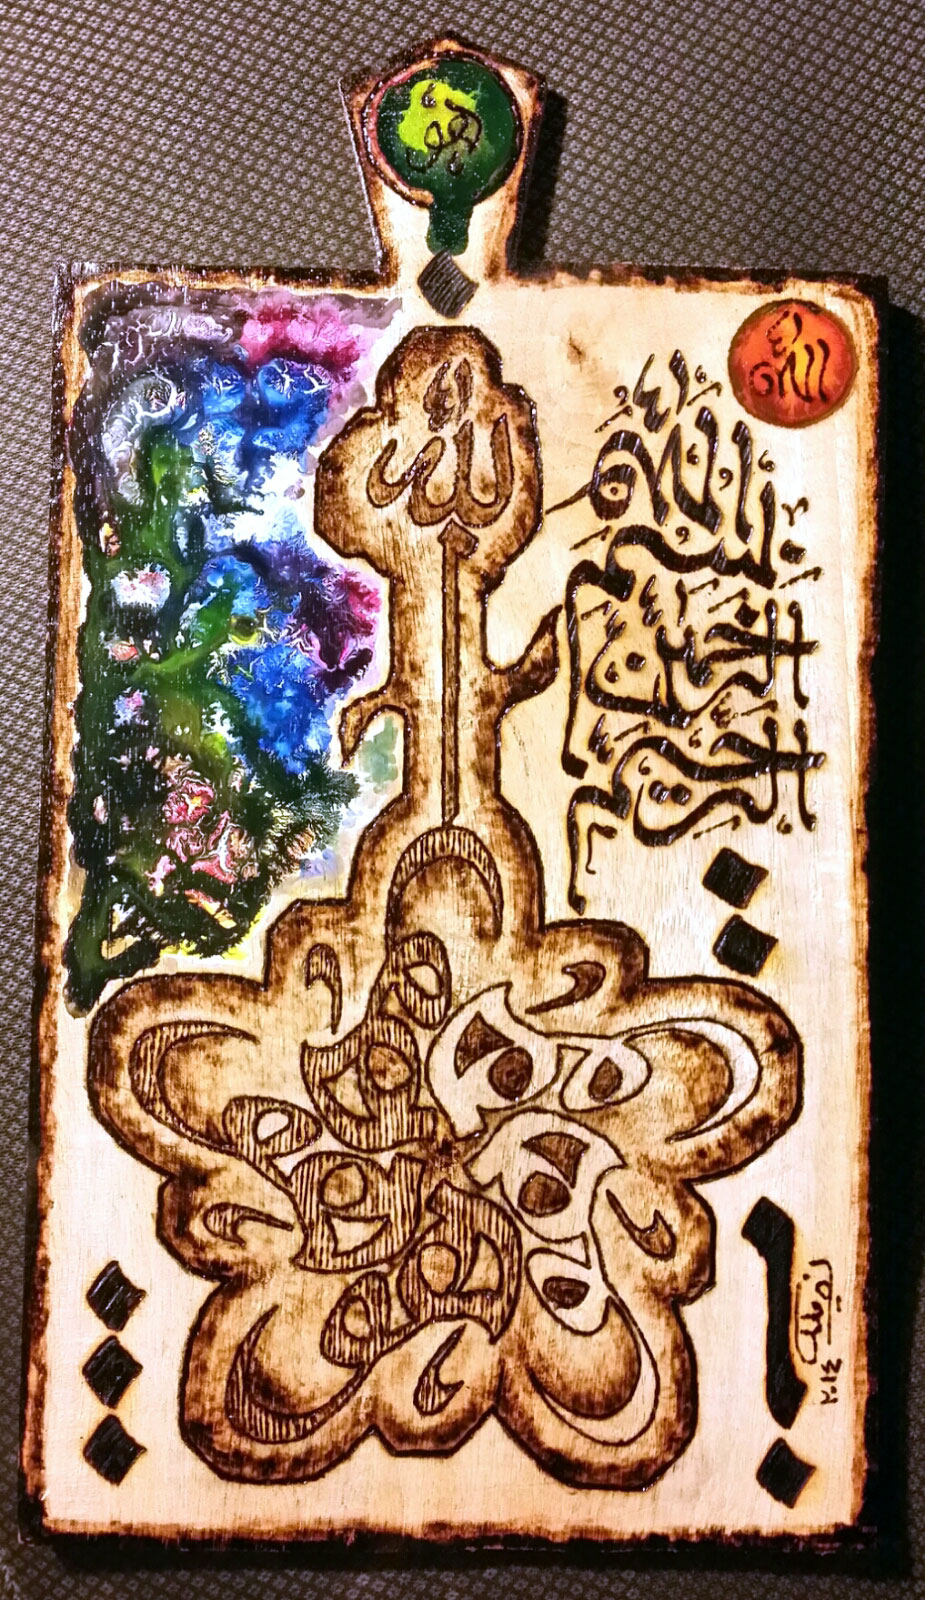 هو
الله
الله
بسم الله
الرحمن
الرحيم
هو
هو
هو
هو
هو
ب
٢٠١٤